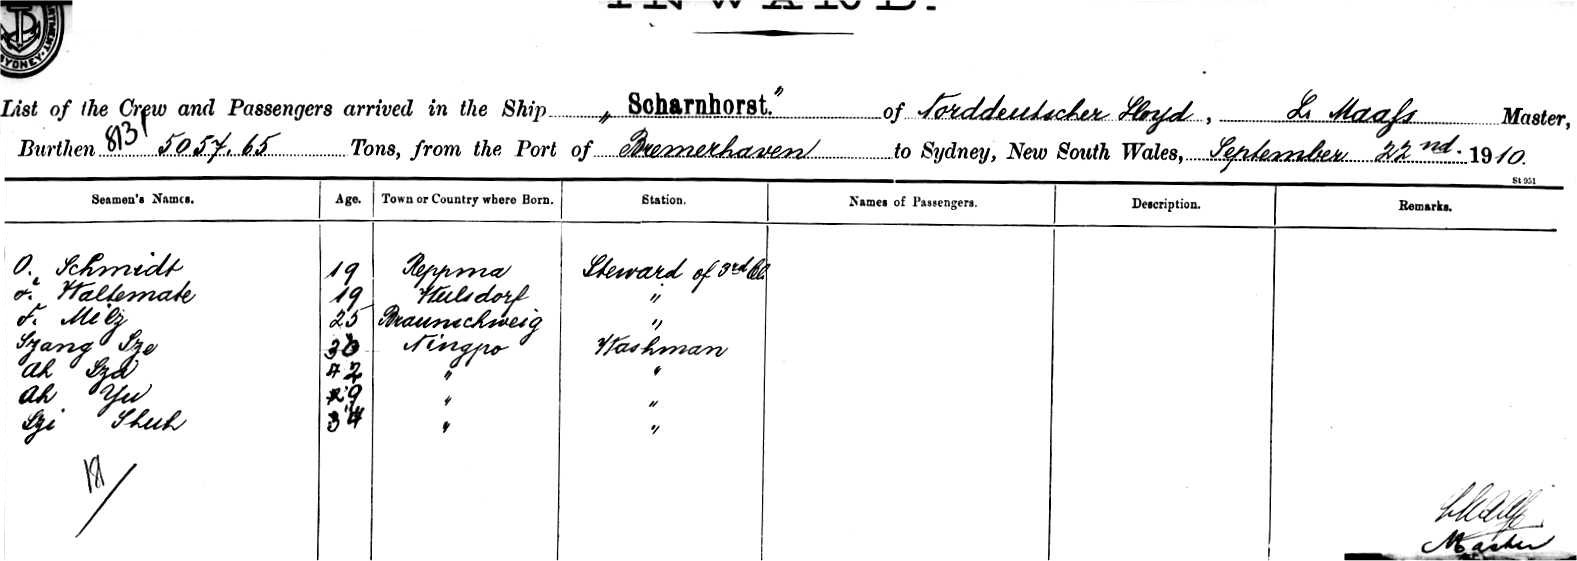 INWARD.
SYDNEY.
List of the Crew and Passengers arrived in the Ship „Scharnhorst." of Norddeutscher Lloyd, L. Maaſs Master,
Burthen 8131 5057.65 Tons, from the Port of Bremerhaven to Sydney, New South Wales, September 22nd. 1910.
St 951
Seamen's Names. Age. Town or Country where Born. Station. Names of Passengers. Description. Remarks.
O. Schmidt 19 Steward of 3rd Cl.
Waltemate 19 Wulsdorf "
F. Milz 25 Braunschweig "
Szang Sze Ningpo Washman
Ah Sza 42 " "
Ah Yu 29 " "
Szi Shuh 34 " "
Master